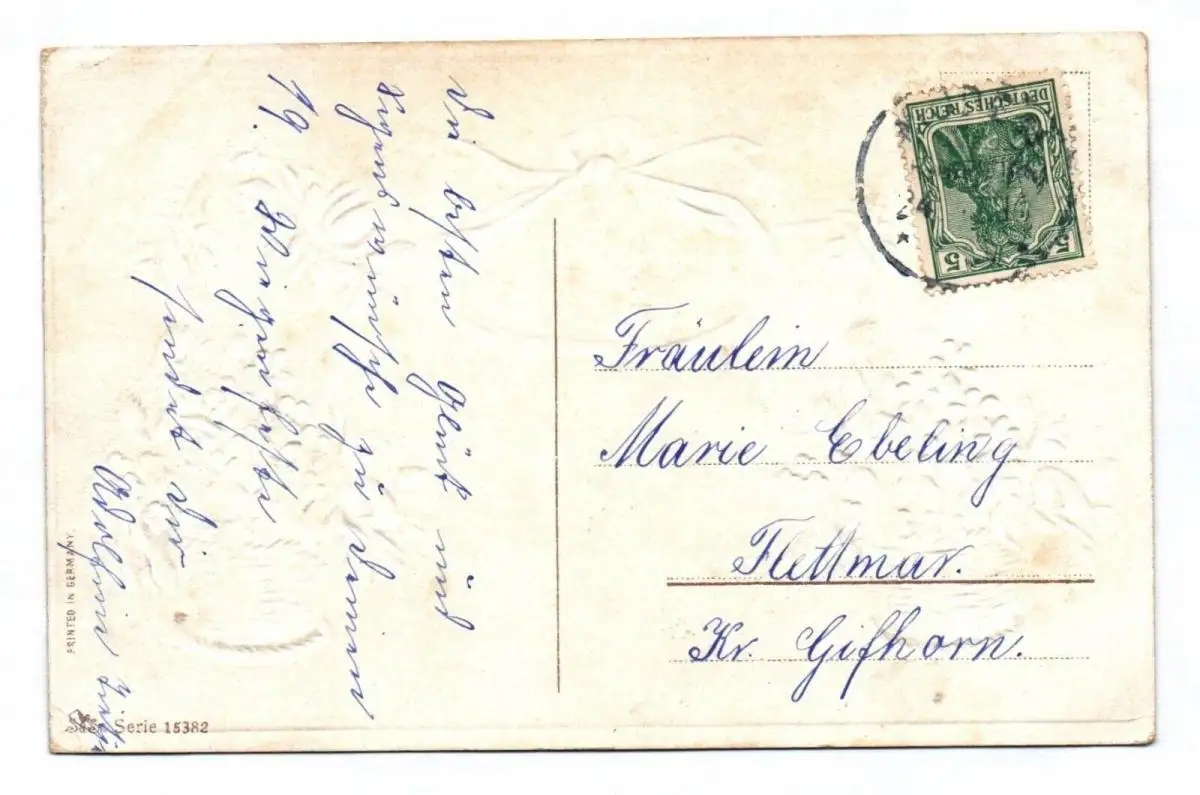 Die besten Glück und
Segenswünsche zu Deinem
19. Wiegenfeste
sendet Dir
PRINTED IN GERMANY.
Serie 15382
DEUTSCHES REICH
5 5
Fräulein
Marie Ebeling
Flettmar.
Kr. Gifhorn.